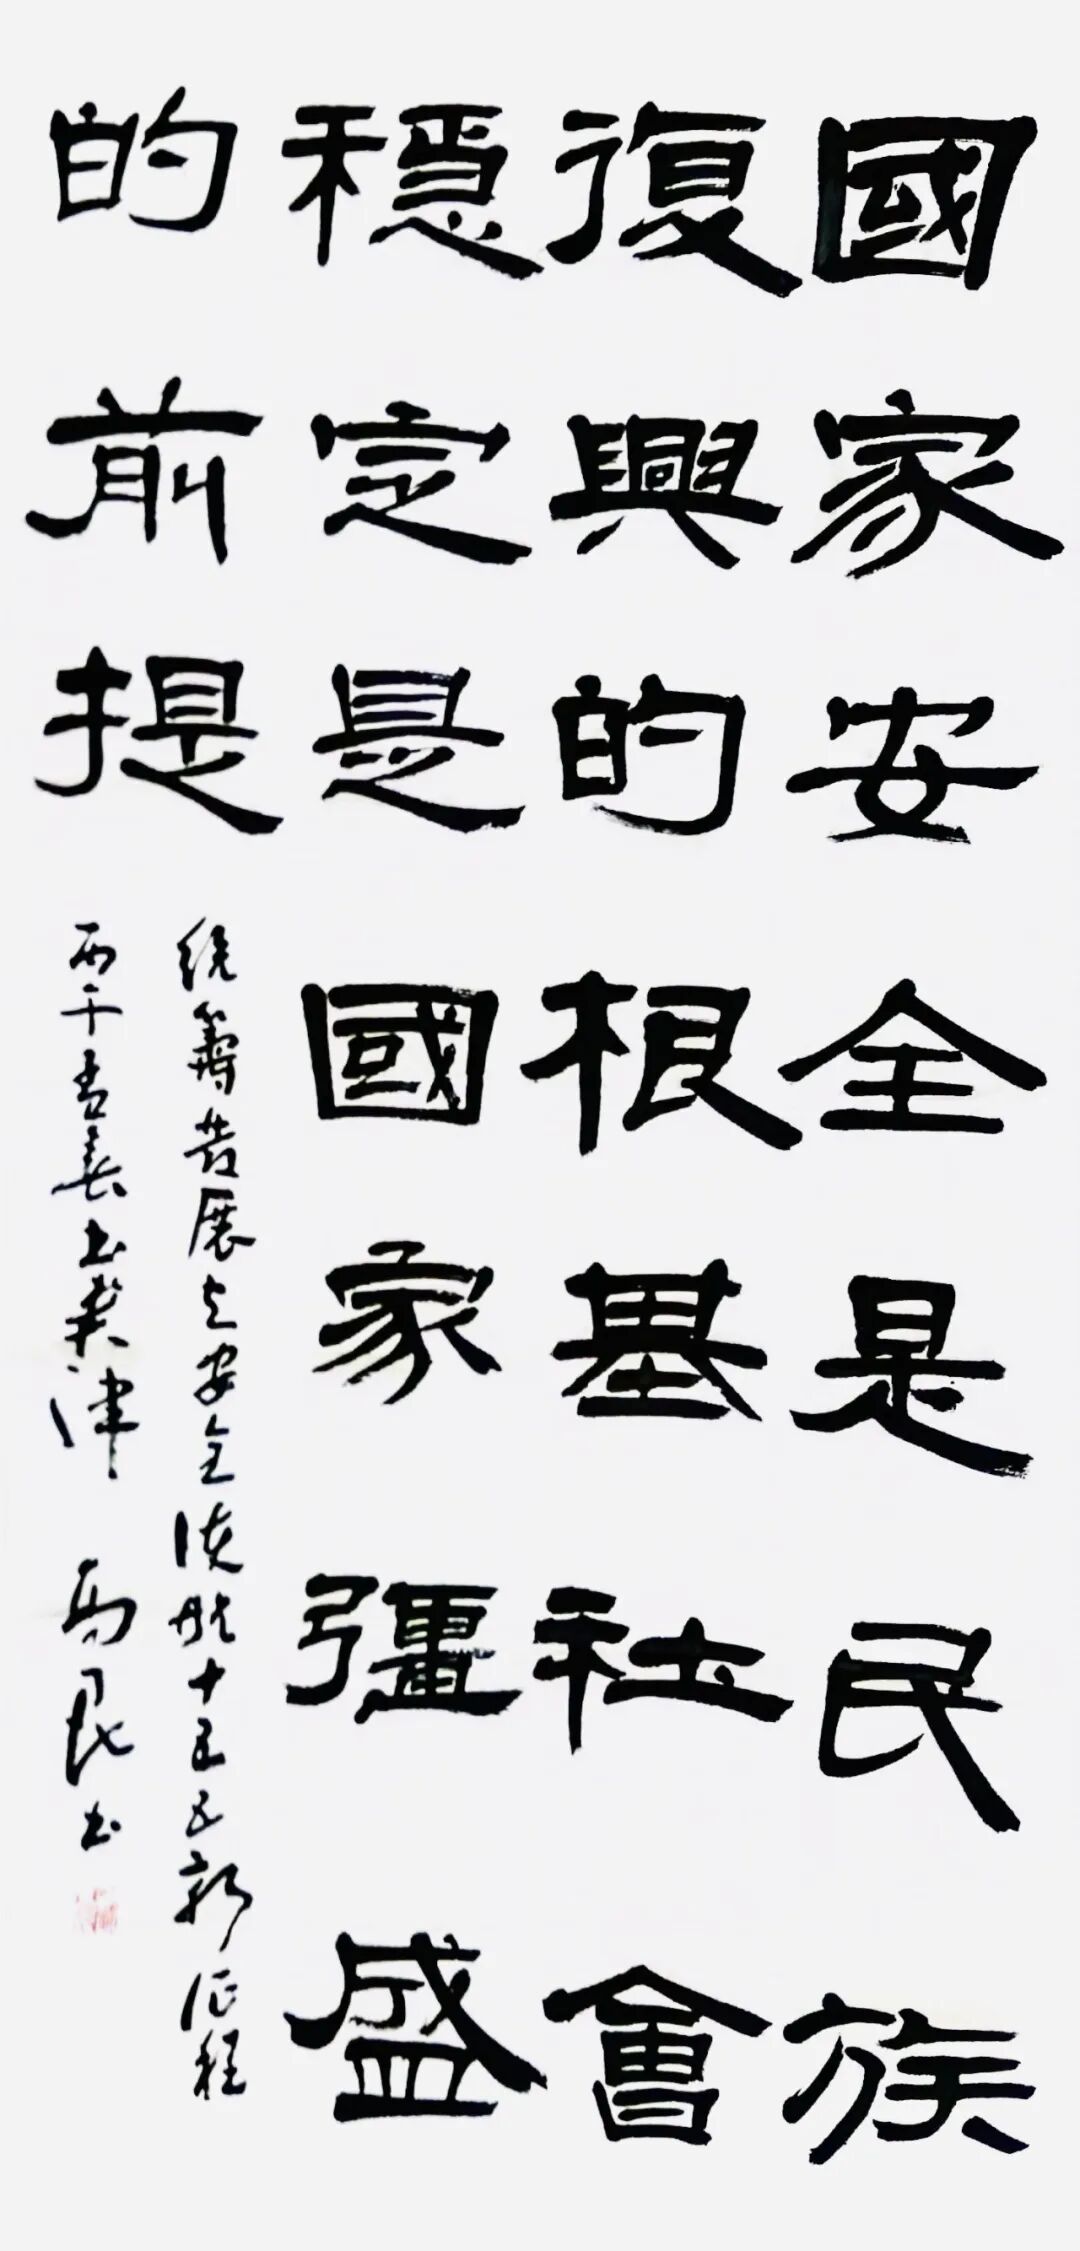 國家安全是民族
復興的根基社會
穩定是國家彊盛
的前提
统籌发展与安全 护航十五五新征程
丙午春書 津 馬 书